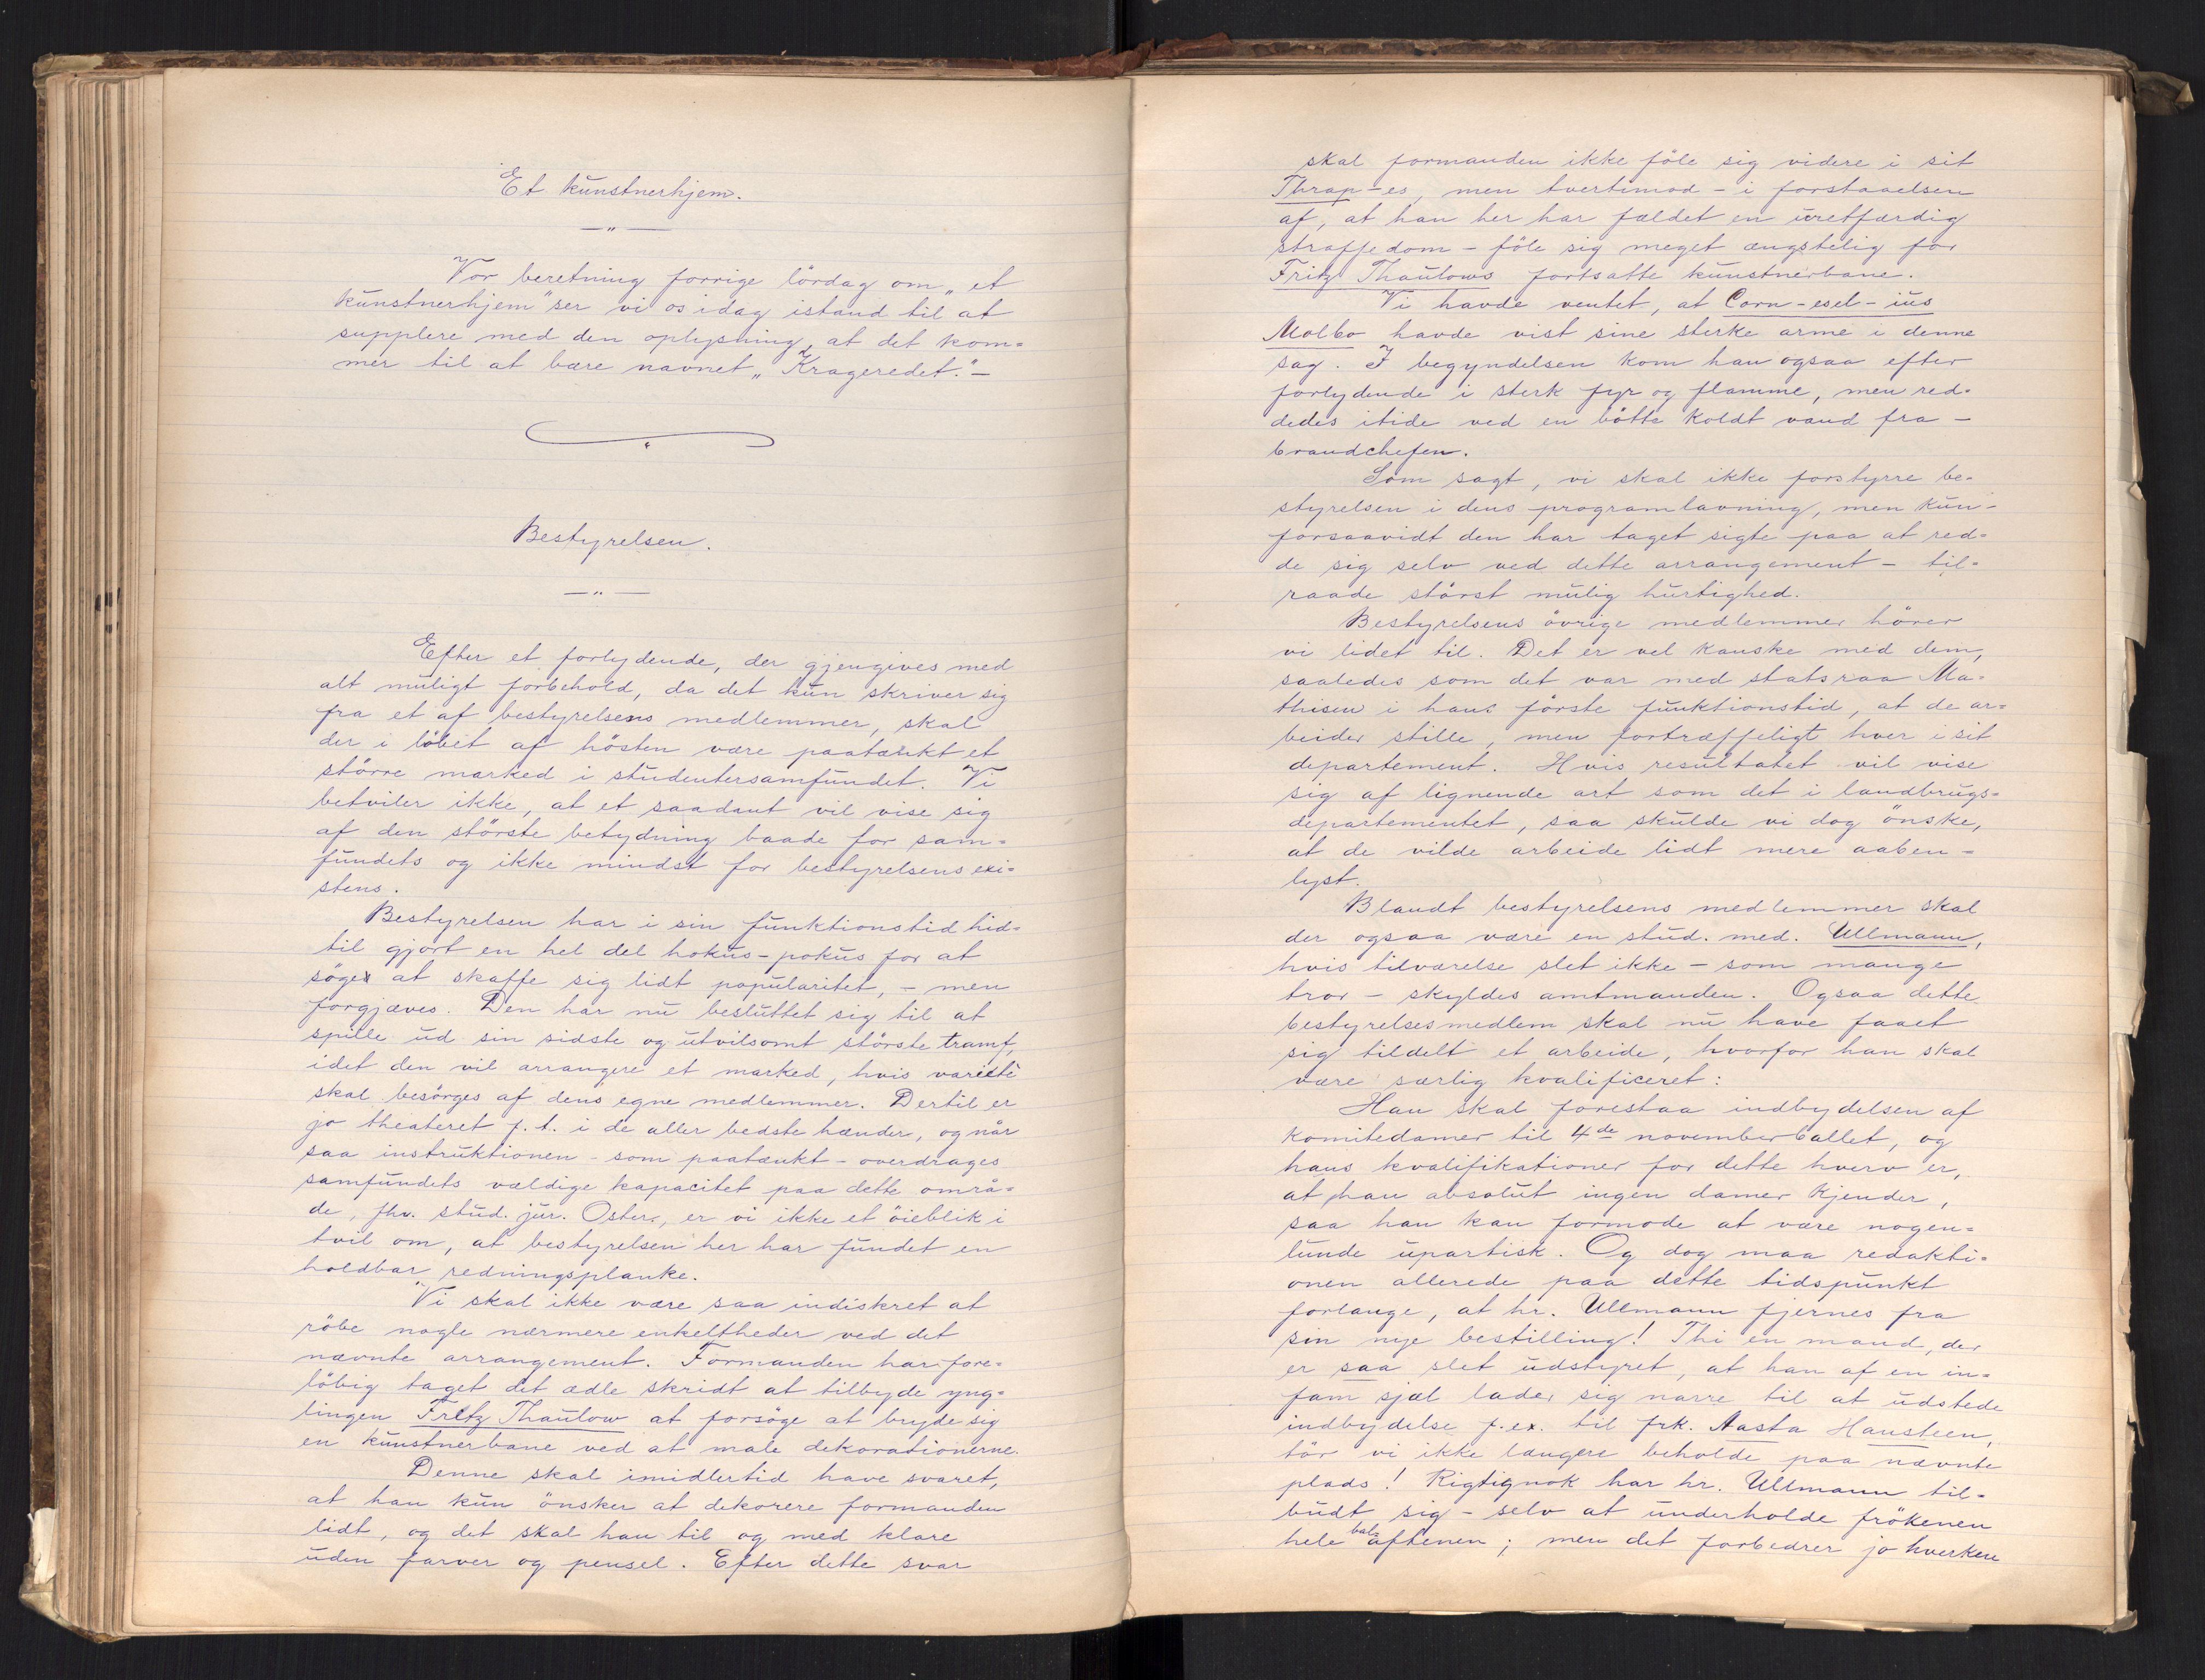 Et kunstnerhjem.
—„—
Vor beretning forrige lördag om „et
kunstnerhjem" ser vi os idag istand til at
supplere med den oplysning, at det kom=
mer til at bære navnet „Krageredet."—
Bestyrelsen.
—„—
Efter et forlydende, der gjengives med
alt muligt forbehold, da det kun skriver sig
fra et af bestyrelsens medlemmer, skal
der i löbet af hösten være paatænkt et
större marked i studentersamfundet. Vi
betviler ikke, at et saadant vil vise sig
af den störste betydning baade for sam=
fundets og ikke mindst for bestyrelsens exi=
stens.
Bestyrelsen har i sin funktionstid hid=
til gjort en hel del hokus-pokus for at
söge at skaffe sig lidt popularitet, – men
forgjæves. Den har nu besluttet sig til at
spille ud sin sidste og utvilsomt störste tramf,
idet den vil arrangere et marked, hvis varieté
skal besörges af dens egne medlemmer. Dertil er
jo theateret f.t. i de aller bedste hænder, og når
saa instruktionen – som paatænkt – overdrages
samfundets vældige kapacitet paa dette områ=
de, fhv. stud. jur. Oster, er vi ikke et öieblik i
tvil om, at bestyrelsen her har fundet en
holdbar redningsplanke.
Vi skal ikke være saa indiskret at
röbe nogle nærmere enkeltheder ved det
nævnte arrangement. Formanden har fore=
löbig taget det ædle skridt at tilbyde yng=
lingen Fritz Thaulow at forsöge at bryde sig
en kunstnerbane ved at male dekorationerne.
Denne skal imidlertid have svaret,
at han kun önsker at dekorere formanden
lidt, og det skal han til og med klare
uden farver og pensel. Efter dette svar
skal formanden ikke föle sig videre i sit
Thrap-es, men tvertimod – i forstaaelsen
af, at han her har fældet en uretfærdig
straffedom – föle sig meget ængstelig for
Fritz Thaulows fortsatte kunstnerbane.
Vi havde ventet, at Corn-esel-ius
Molbo havde vist sine sterke arme i denne
sag. I begyndelsen kom han ogsaa efter
forlydende i sterk fyr og flamme, men red=
dedes itide ved en bötte koldt vand fra –
brandchefen.
Som sagt, vi skal ikke forstyrre be=
styrelsen i dens programlavning, men kun –
forsaavidt den har taget sigte paa at red=
de sig selv ved dette arrangement – til=
raade störst mulig hurtighed.
Bestyrelsens övrige medlemmer hörer
vi lidet til. Det er vel kanske med dem,
saaledes som det var med statsraa Ma=
thisen i hans förste funktionstid, at de ar=
beider stille, men fortræffeligt hver i sit
departement. Hvis resultatet vil vise
sig af lignende art som det i landbrugs=
departementet, saa skulde vi dog önske,
at de vilde arbeide lidt mere aaben=
lyst.
Blandt bestyrelsens medlemmer skal
der ogsaa være en stud. med. Ullmann,
hvis tilværelse slet ikke – som mange
tror – skyldes amtmanden. Ogsaa dette
bestyrelsesmedlem skal nu have faaet
sig tildelt et arbeide, hvorfor han skal
være særlig kvalificeret:
Han skal forestaa indbydelsen af
komitedamer til 4de novemberballet, og
hans kvalifikationer for dette hverv er,
at han absolut ingen damer kjender,
saa han kan formode at være nogen=
lunde upartisk. Og dog maa redakti=
onen allerede paa dette tidspunkt
forlange, at hr. Ullmann fjernes fra
sin nye bestilling! Thi en mand, der
er saa slet udstyret, at han af en in=
fam sjæl lader sig narre til at udstede
indbydelse f.ex. til frk. Aasta Hansteen,
tör vi ikke længere beholde paa nævnte
plads! Rigtignok har hr. Ullmann til=
budt sig – selv at underholde frökenen
hele balaftenen; men det forbedrer jo hverken